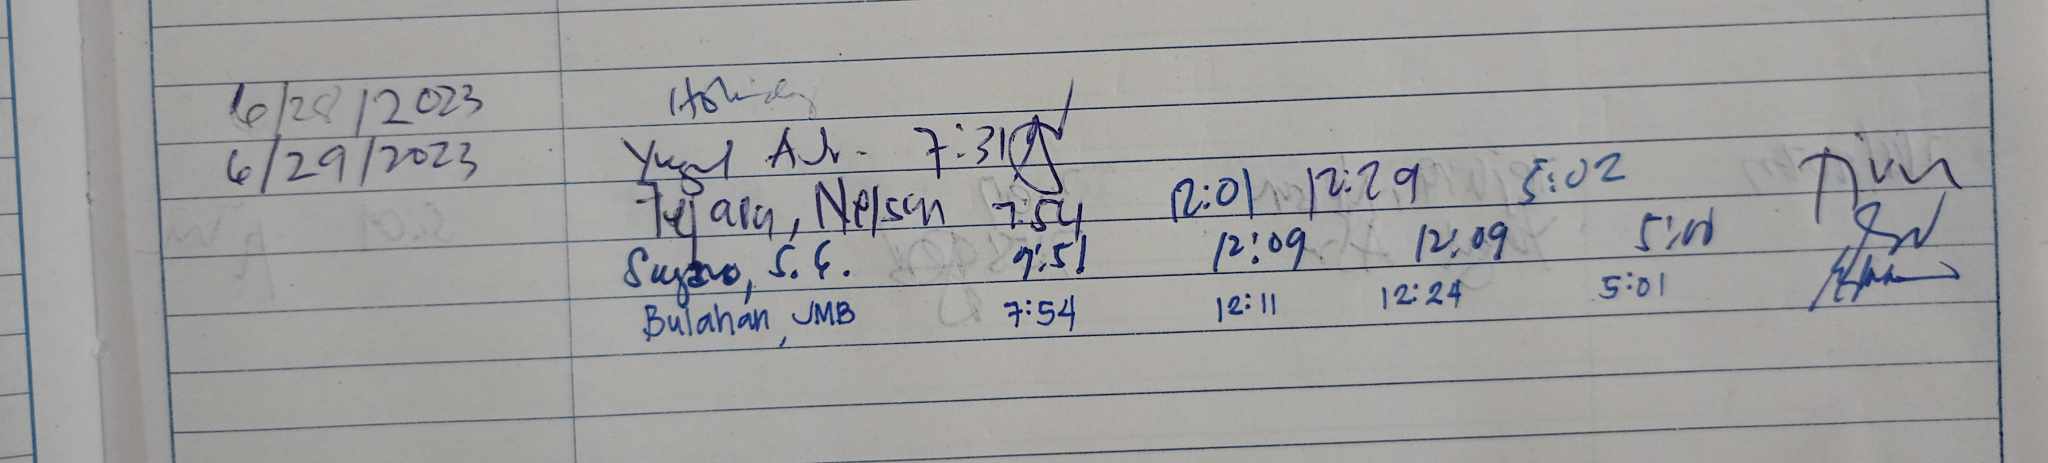 6/28/2023 Holiday
6/29/2023 7:31
Tejara, Nelson 7:54 12:01 12:29 5:02
S. E. 7:51 12:09 12:09
Bulahan, JMB 7:54 12:11 12:24 5:01